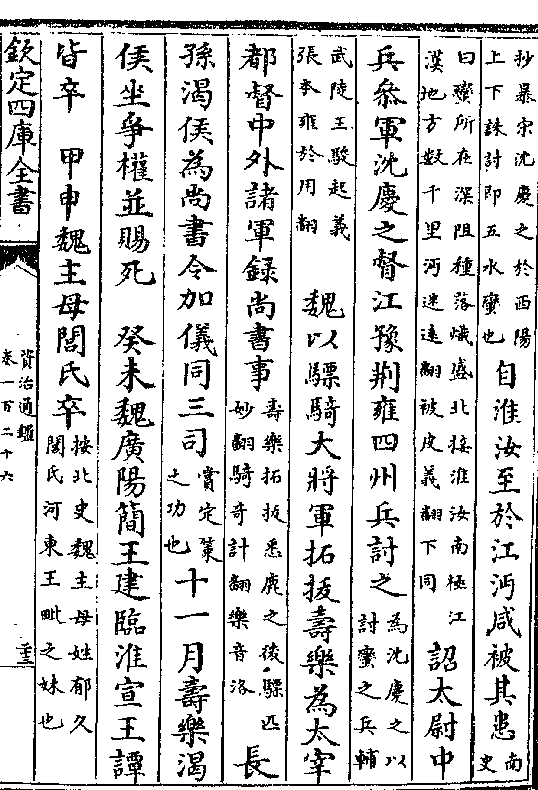 抄暴宋沈慶之於西陽
上下誅討即五水蠻也自淮汝至於江沔咸被其患南史
曰蠻所在深阻種落熾盛北接淮汝南極江
漢地方數千里沔迷遠翻被皮義翻下同詔太尉中
兵叅軍沈慶之督江豫荆雍四州兵討之為沈慶之以討蠻之兵輔
武陵王駿起義
張本雍於用翻魏以驃騎大將軍拓拔壽樂為太宰
都督中外諸軍録尚書事壽樂拓拔悉鹿之後驃匹妙翻騎奇計翻樂音洛長
孫渴侯為尚書令加儀同三司賞定策之功也十一月壽樂渴
侯坐爭權並賜死 癸未魏廣陽簡王建臨淮宣王譚
皆卒 甲申魏主母閭氏卒按北史魏主母姓郁久閭氏河東王毗之妹也
欽定四庫全書
資治通鑑
卷一百二十六